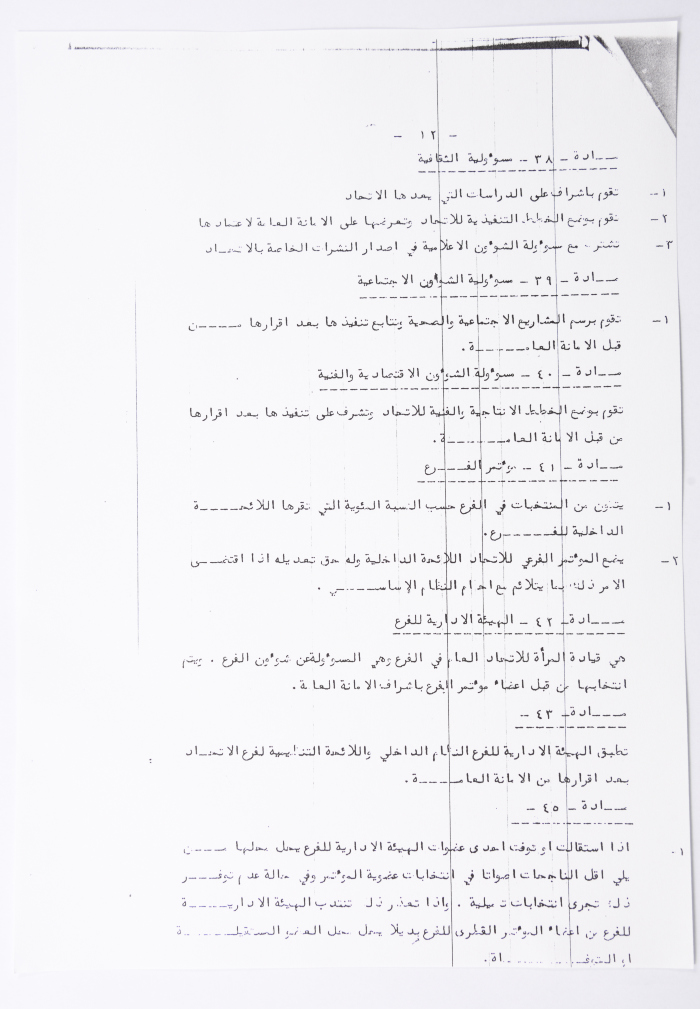 - ١٢ -
مــادة - ٣٨ - مسؤولية الثقافية
١- تقوم باشراف على الدراسات التي يعدها الاتحاد
٢- تقوم بوضع الخطط التنفيذية للاتحاد وتعرضها على الامانة العامة لاعتمادها
٣- تشترك مع مسؤولة الشؤون الاعلامية في اصدار النشرات الخاصة بالاتحــاد
مــادة - ٣٩ - مسؤولية الشؤون الاجتماعية
١- تقوم برسم المشاريع الاجتماعية والصحية وتتابع تنفيذها بعد اقرارها مـــن
قبل الامانة العامـــة .
مــادة - ٤٠ - مسؤولة الشؤون الاقتصادية والفنية
تقوم بوضع الخطط الانتاجية والفنية للاتحاد وتشرف على تنفيذها بعد اقرارها
من قبل الامانة العامـــة .
مــادة - ٤١ - مؤتمر الفـــرع
١- يتكون من المنتخبات في الفرع حسب النسبة المئوية التي تقرها اللائحـــة
الداخلية للفـــرع .
٢- يضع المؤتمر الفرعي للاتحاد اللائحة الداخلية وله حق تعديله اذا اقتضــى
الامر ذلك بما يتلائم مع احكام النظام الاساســـي .
مــادة - ٤٢ - الهيئة الادارية للفرع
هي قيادة المرأة للاتحاد العام في الفرع وهي المسؤولة عن شؤون الفرع . ويتم
انتخابها من قبل اعضاء مؤتمر الفرع باشراف الامانة العامة .
مــادة - ٤٣ -
تطبق الهيئة الادارية للفرع النظام الداخلي واللائحة التنظيمية لفرع الاتحــاد
بعد اقرارها من الامانة العامـــة .
مــادة - ٤٥ -
١- اذا استقالت او توفت احدى عضوات الهيئة الادارية للفرع يحل محلها مـــن
يلي اقل الناجحات اصواتا في انتخابات عضوية المؤتمر وفي حالة عدم توفـــر
ذلك تجرى انتخابات تكميلية . واذا تعذر ذلك تنتدب الهيئة الاداريـــة
للفرع من اعضاء المؤتمر القطرى للفرع بديلا يحل محل العضو المستقيلـــة
او المتوفـــاة .